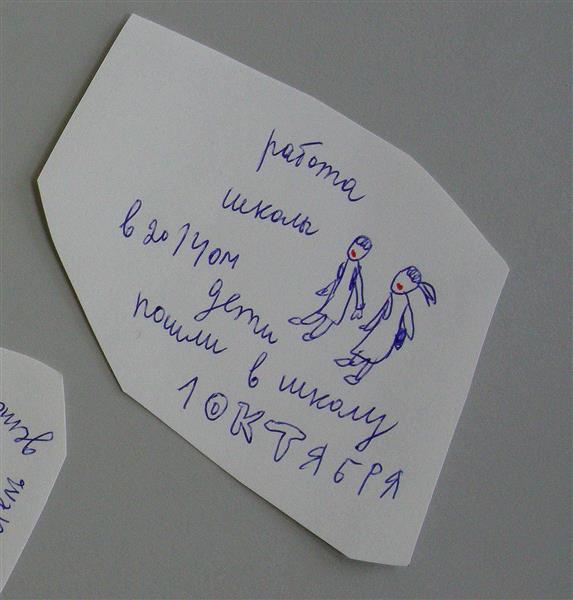 работа
школы
в 2014ом
дети
пошли в школу
1 ОКТЯБРЯ